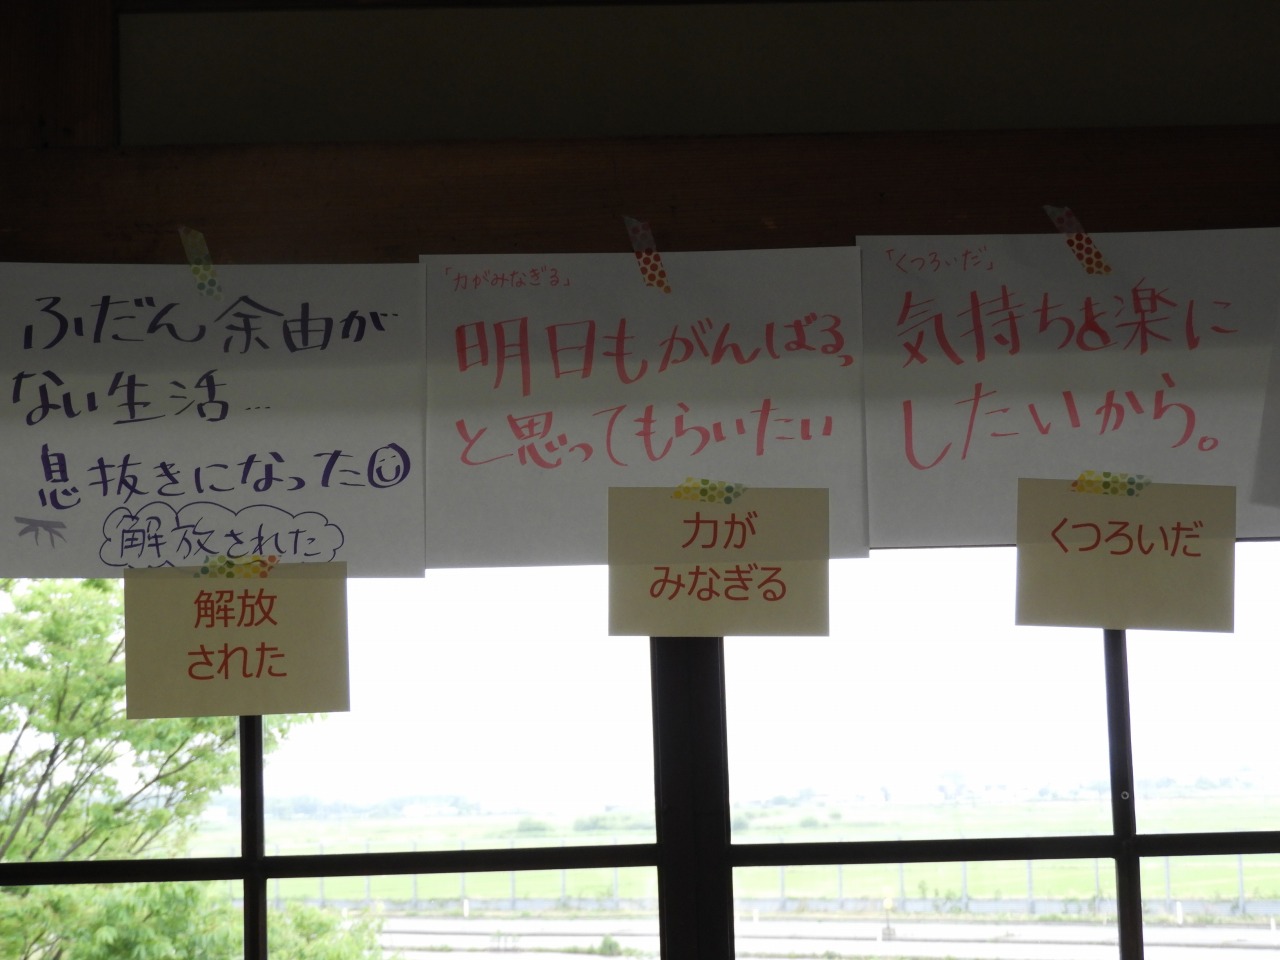 ふだん余由が
ない生活…
息抜きになった
解放された
解放
された
「力がみなぎる」
明日もがんばる、
と思ってもらいたい
力が
みなぎる
「くつろいだ」
気持ちを楽に
したいから。
くつろいだ